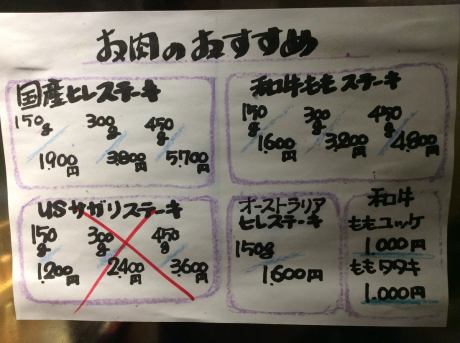 お肉のおすすめ
国産ヒレステーキ
150g 300g 450g
1900円 3,800円 5,700円
和牛ももステーキ
150g 300g 450g
1,600円 3,200円 4,800円
USサガリステーキ
150g 300g 450g
1,200円 2,400円 3,600円
オーストラリア
ヒレステーキ
150g
1,600円
和牛
ももユッケ
1,000円
ももタタキ
1,000円